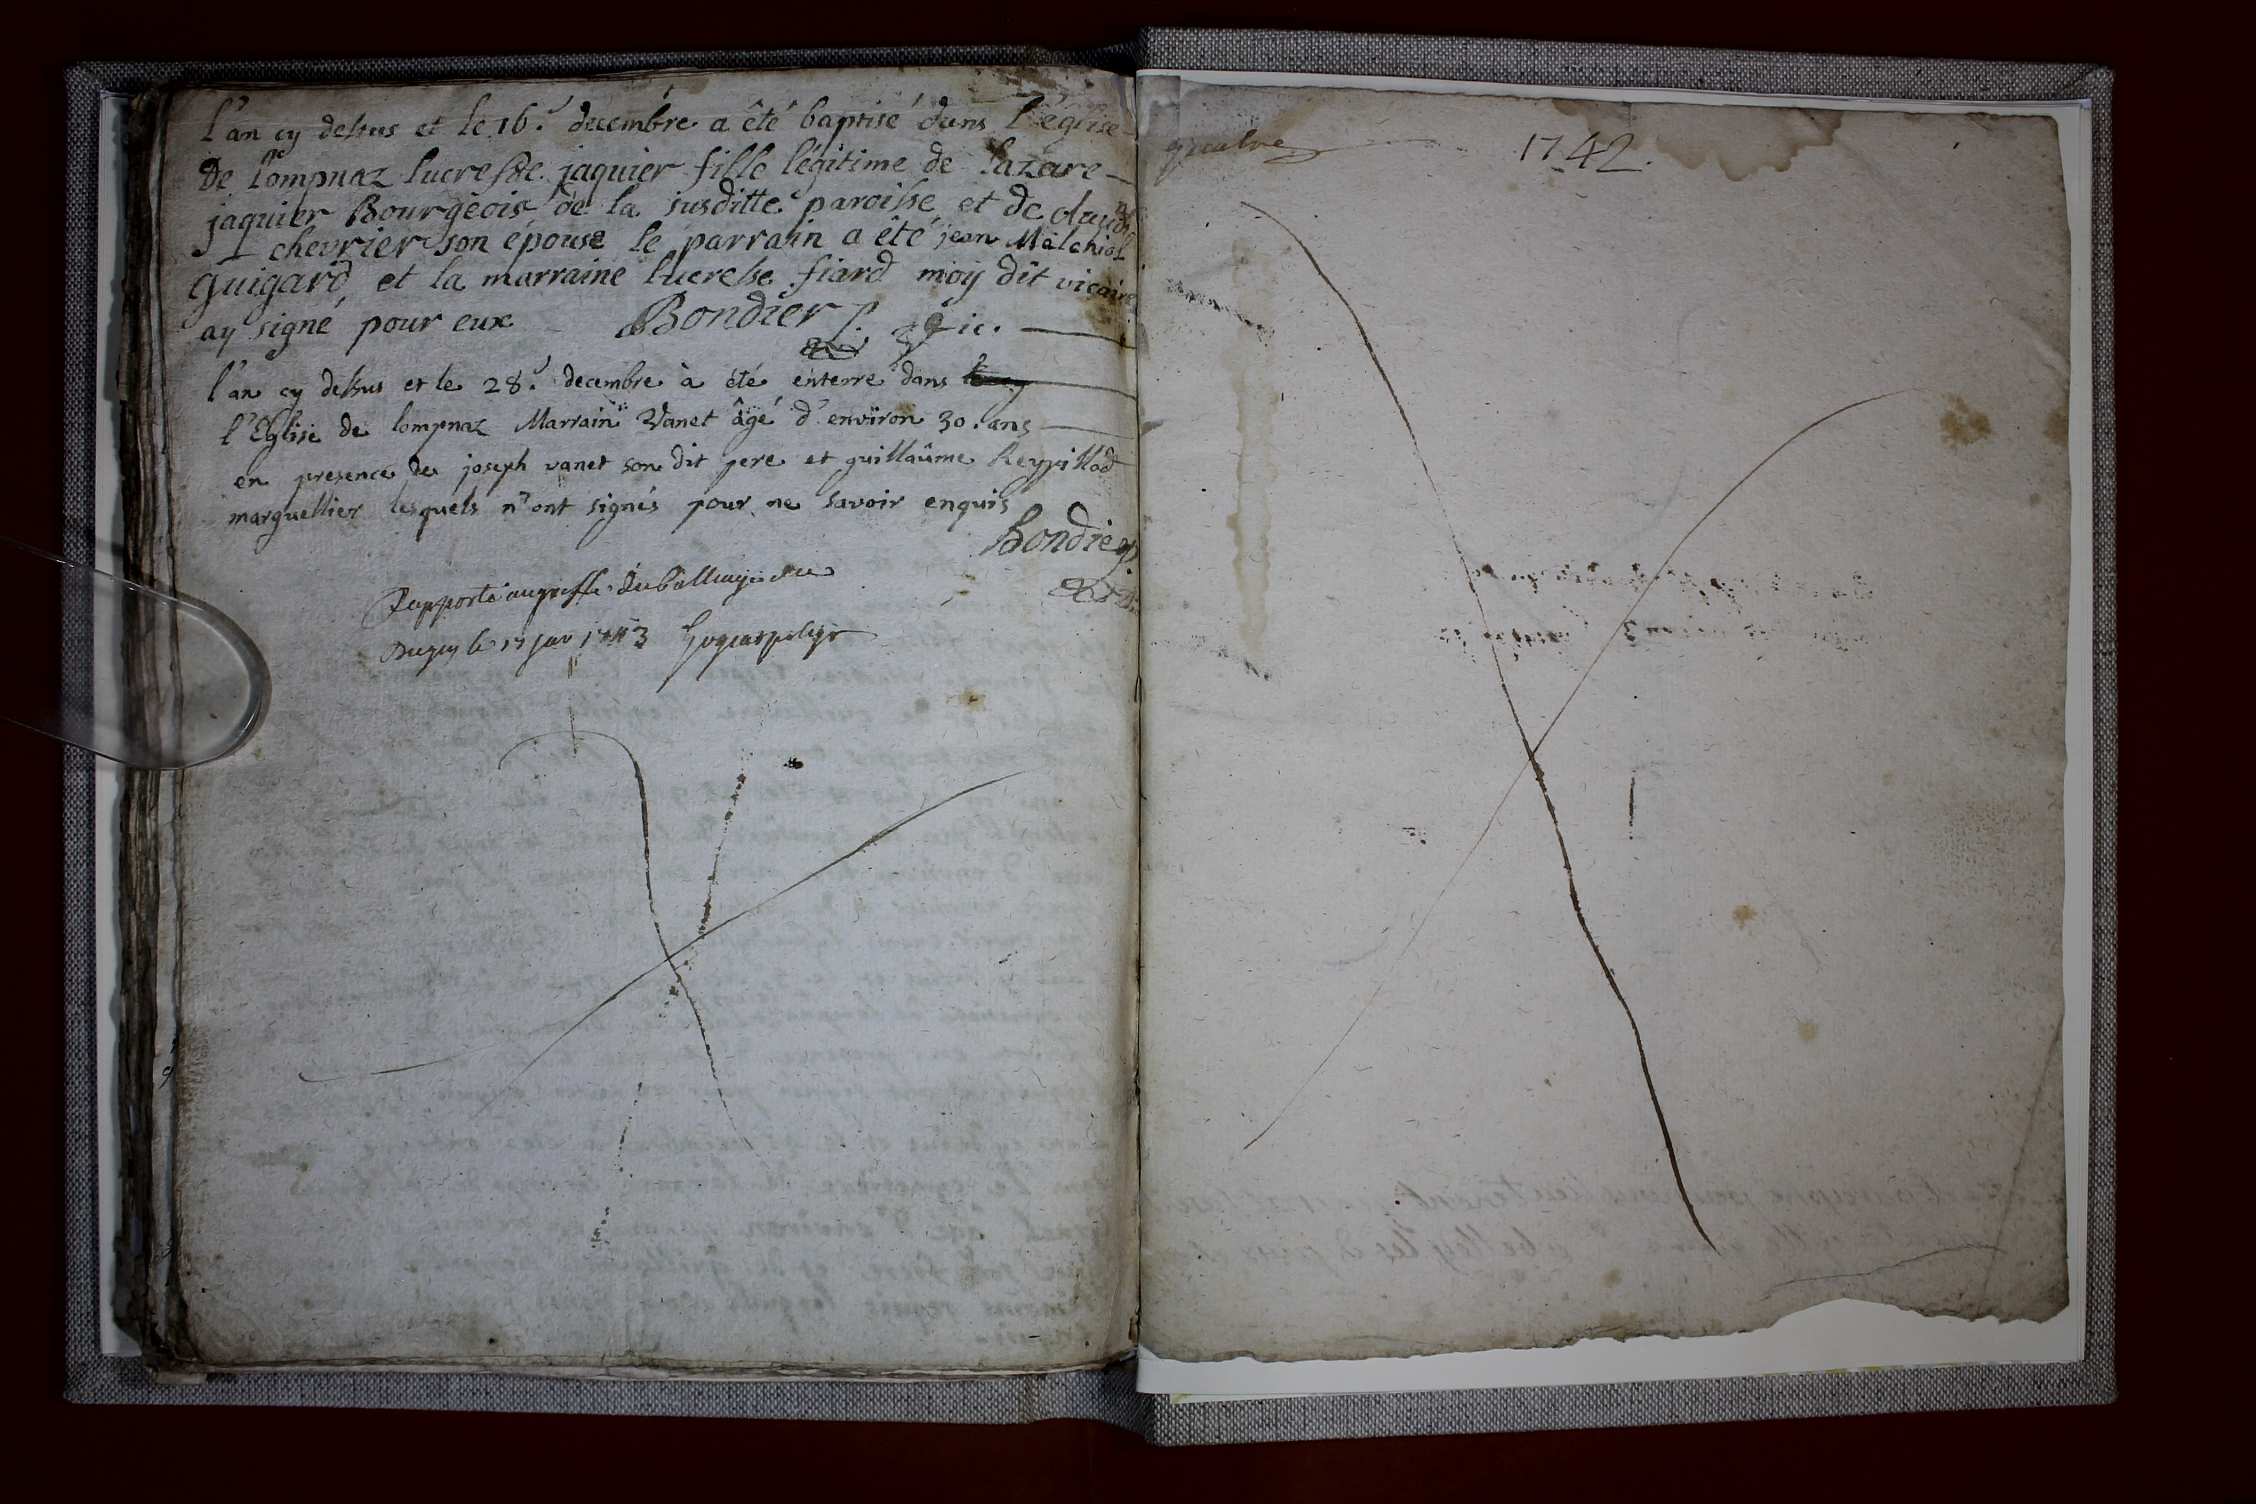 l'an cy dessus et le 16.e decembre a été baptisé dans l'église
De lompnaz lucresse jaquier fille légitime de lazare
jaquier Bourgeois de la susditte paroisse et de claud.ne
chevrier son épouse le parrain a été jean Melchiol
guigard et la marraine lucresse fiard moy dit vicaire
ay signé pour eux Bondier p. vic.
l'an cy dessus et le 28.e decembre à été enterré dans
l'Eglise de lompnaz Marrain Vanet âgé d'environ 30. ans
en presence de joseph vanet son dit pere et guillaûme Reyrillod
marguellier lesquels n'ont signés pour ne savoir enquis
Bondier
Rapporté au greffe du balliage de
Bugey le 17 janv 1743
1742.